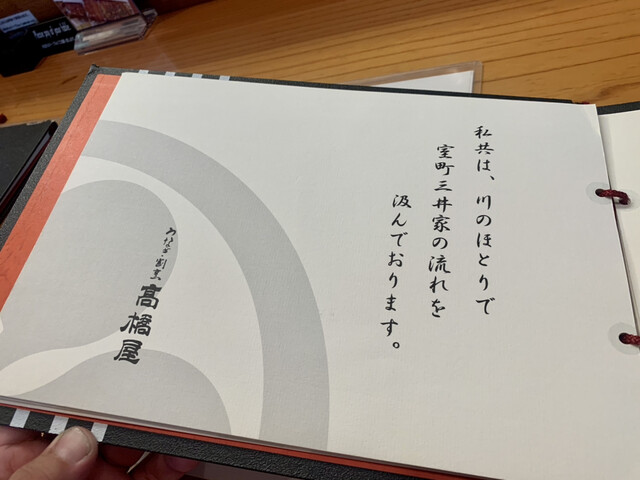 私共は、川のほとりで
室町三井家の流れを
汲んでおります。
うなぎ・割烹
高橋屋